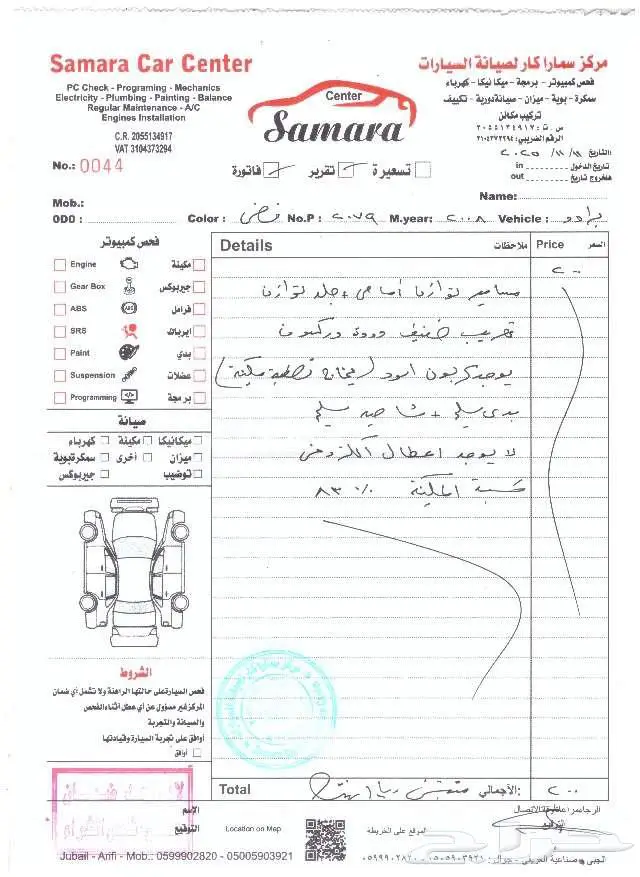 Samara Car Center
مركز سمارا كار لصيانة السيارات
PC Check - Programing - Mechanics
Electricity - Plumbing - Painting - Balance
Regular Maintenance - A/C
Engines Installation
فحص كمبيوتر - برمجة - ميكانيكا - كهرباء
سمكرة - بوية - ميزان - صيانة دورية - تكييف
تركيب مكائن
Center
Samara
C.R. 2055134917
VAT 3104373294
س.ت: ٢٠٥٥١٣٤٩١٧
الرقم الضريبي: ٣١٠٤٣٧٣٢٩٤
No.: 0044
التاريخ: ٢٠٢٥/١١/١١
in تاريخ الدخول
out تاريخ الخروج
فاتورة
تقرير
تسعيرة
Mob.:
Name:
ODO :
Color : فضي
No.P : ٢٠٧٩
M.year: ٢٠٠٨
Vehicle : برادو
فحص كمبيوتر
Engine مكينة
Gear Box جيربوكس
ABS فرامل
SRS ايرباك
Paint بدي
Suspension عضلات
Programming برمجة
صيانة
ميكانيكا مكينة كهرباء
ميزان أخرى سمكرة وبوية
توضيب جيربوكس
Details ملاحظات Price السعر
٢٠٠
مسامير توازن أمامي + جلد توازن
تهريب خفيف
يوجد كربون أسود (يحتاج تنظيف مكينة)
بدي سليم + شاصيه سليم
لا يوجد اعطال الكتروني
نسبة المكينة ٨٣٪
الشروط
فحص السيارة على حالتها الراهنة ولا تشمل أي ضمان
المركز غير مسؤول عن أي عطل أثناء الفحص
والصيانة والتجربة
أوافق على تجربة السيارة وقيادتها
أوافق
Total
الأجمالي:
٢٠٠
الاسم
التوقيع
Location on Map
الموقع على الخريطة
Jubail - Arifi - Mob.: 0599902820 - 05005903921
حراج